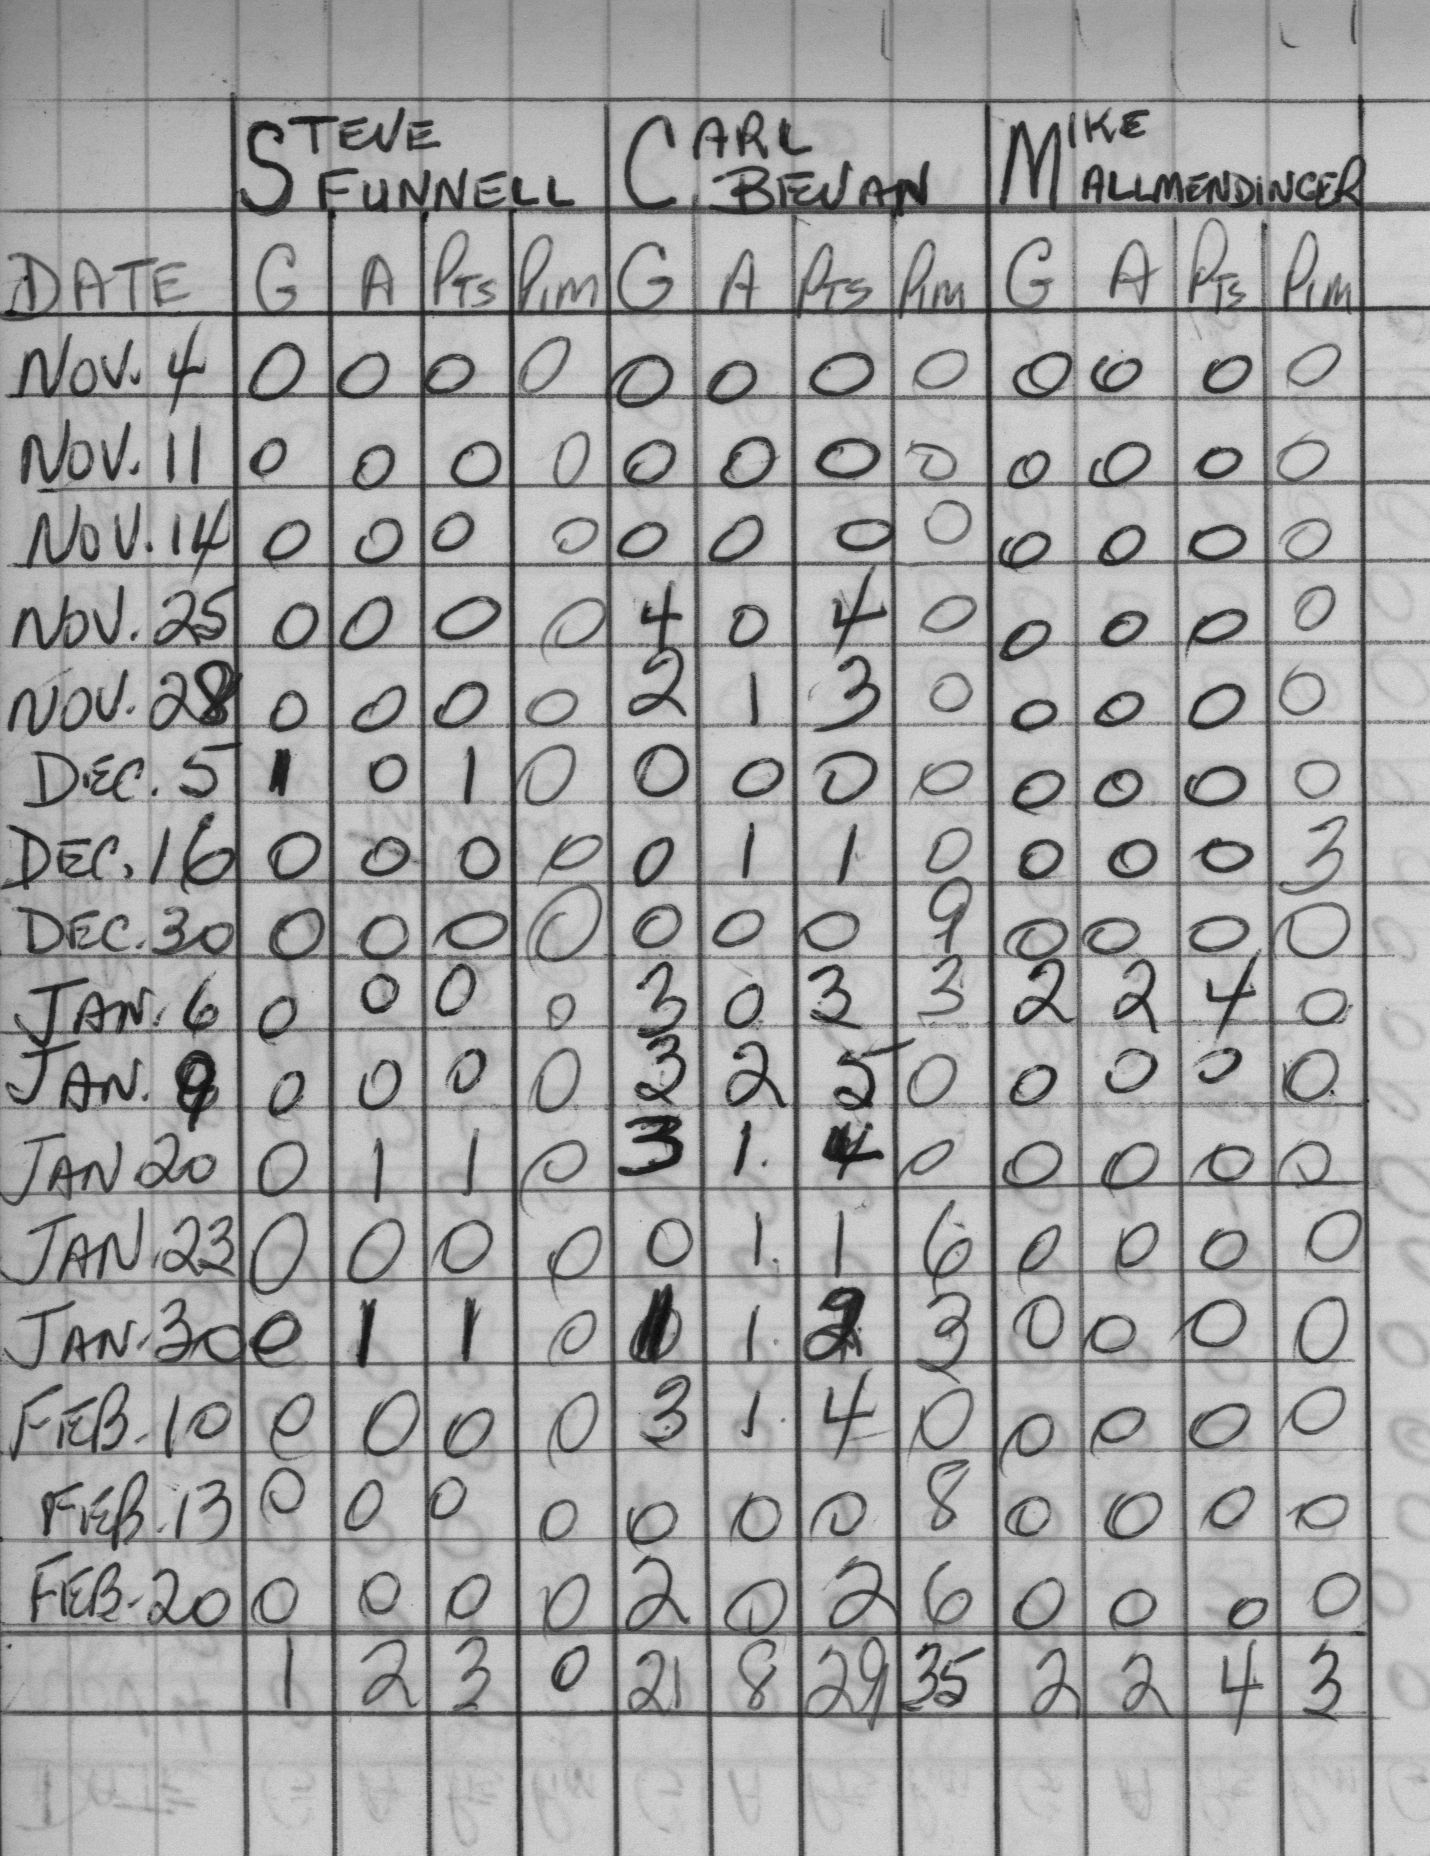 STEVE FUNNELL CARL BEVAN MIKE ALLMENDINGER
DATE G A PTS PIM G A PTS PIM G A PTS PIM
NOV. 4 0 0 0 0 0 0 0 0 0 0 0 0
NOV. 11 0 0 0 0 0 0 0 0 0 0 0 0
NOV. 14 0 0 0 0 0 0 0 0 0 0 0 0
NOV. 25 0 0 0 0 4 0 4 0 0 0 0 0
NOV. 28 0 0 0 0 2 1 3 0 0 0 0 0
DEC. 5 1 0 1 0 0 0 0 0 0 0 0 0
DEC. 16 0 0 0 0 0 1 1 0 0 0 0 3
DEC. 30 0 0 0 0 0 0 0 9 0 0 0 0
JAN. 6 0 0 0 0 3 0 3 3 2 2 4 0
JAN. 9 0 0 0 0 3 2 5 0 0 0 0 0
JAN 20 0 1 1 0 3 1. 4 0 0 0 0 0
JAN. 23 0 0 0 0 0 1. 1 6 0 0 0 0
JAN. 30 0 1 1 0 1 1. 2 3 0 0 0 0
FEB. 10 0 0 0 0 3 1. 4 0 0 0 0 0
FEB. 13 0 0 0 0 0 0 0 8 0 0 0 0
FEB. 20 0 0 0 0 2 0 2 6 0 0 0 0
1 2 3 0 21 8 29 35 2 2 4 3